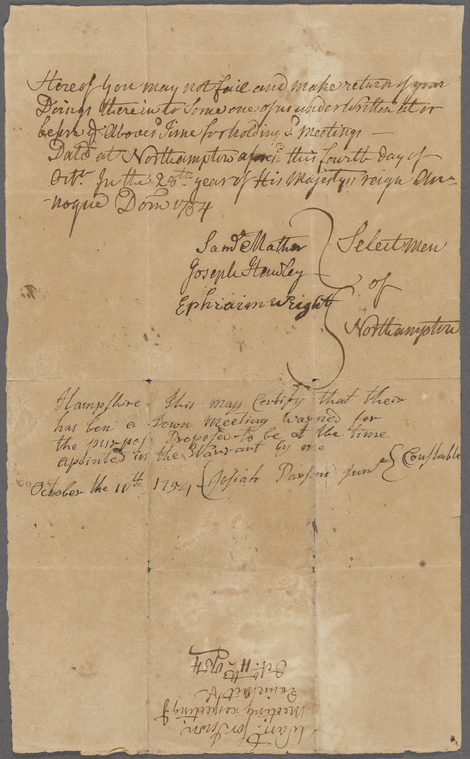 Hereof You may not fail and make return of your
Doings therein to Some one of us underwritten at or
before ye. Aboves.d Time for holding sd. meetings —
Dat.d at Northampton afores.d this fourth day of
Oct.r In the 28th. year of His Majesty,s reign An-
noque Dom 1754
Sam.ll Mather
Joseph Hawley
Ephraim Wright
Selectmen
of
Northampton
Hampshire This may Certify that their
has ben a Town meeting Warned for
the purpos Proposed to be at the time
apointed in the Warrant by me
October the 11th 1754 Josiah Parsons junr Constable
Warr.t for Town
Meeting respecting
Province Act &.
Oct.r 11.th 1754